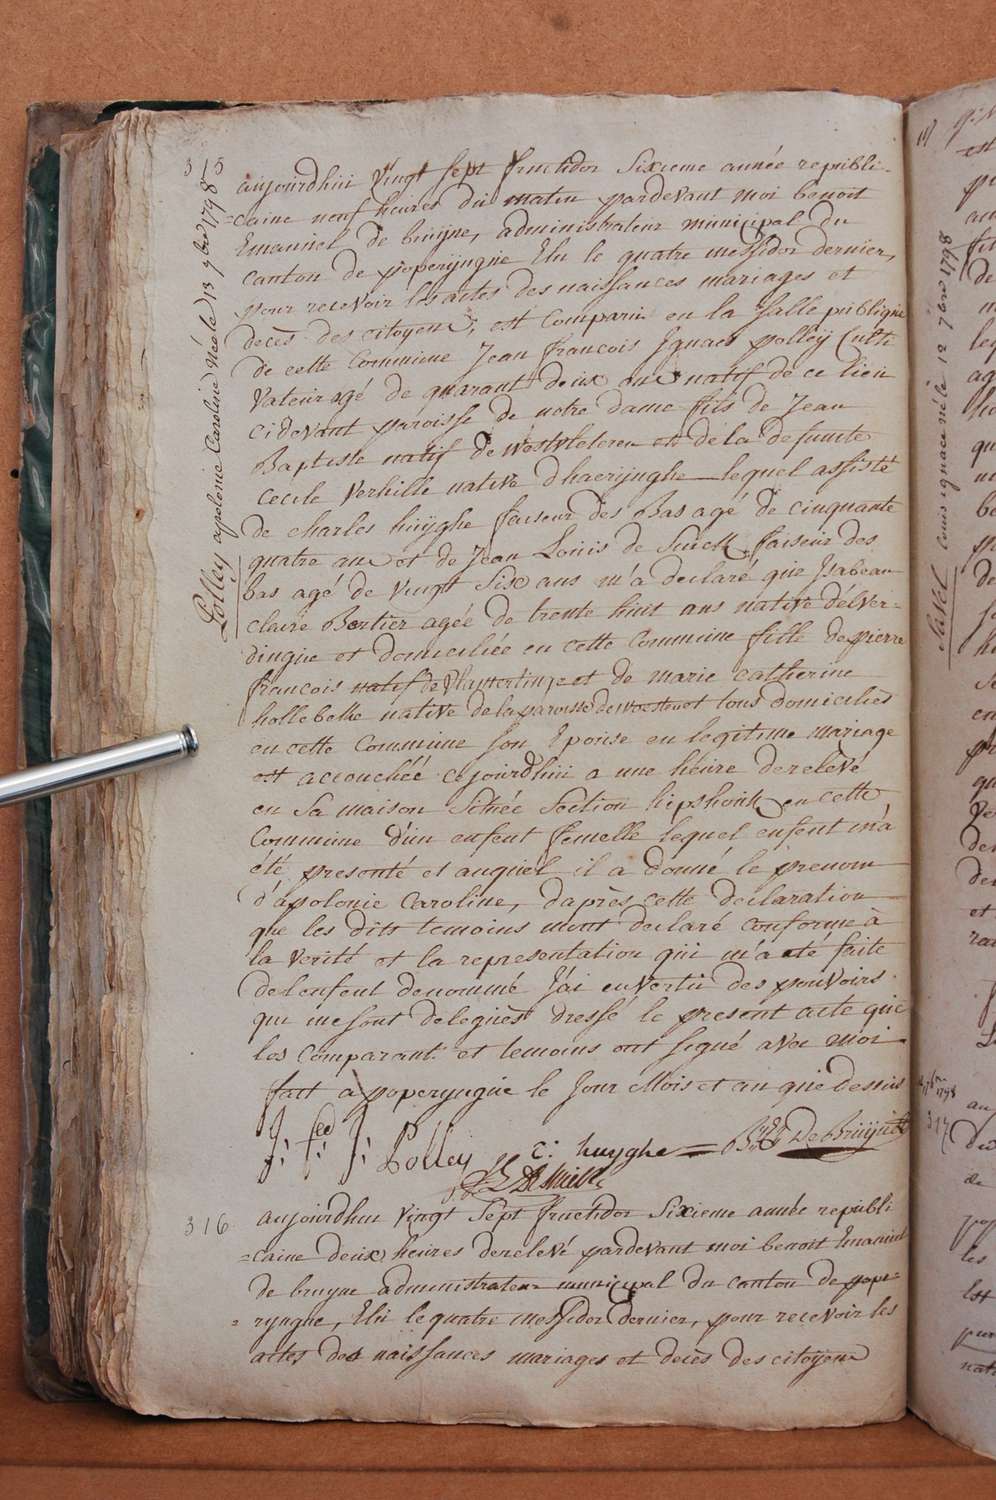 315
Polleÿ appolonie Caroline Née le 13 7bre 1798
aujourdhui vingt sept fructidor Sixieme année republi-
-caine neuf heures du matin pardevant moi benoit
Emanuel de bruyne, administrateur municipal du
Canton de poperyngue Elu le quatre messidor dernier,
pour recevoir les actes des naissances mariages et
decès des citoyens, est comparu en la Salle publique
de cette Commune Jean francois Ignace polleÿ Culti
Vateur agé de quarant deux ans natif de ce lieu
cidevant paroisse de notre dame fils de Jean
Baptiste natif de westvleteren et de la defunte
Cecile Verhille native dhaerijnghe lequel assisté
de charles huÿghe faiseur des Bas agé de cinquante
quatre ans et de Jean Louis de faiseur des
bas agé de vingt Six ans m'a declaré que Isabeau
claire Bertier agée de trente huit ans native délver-
dingue et domiciliée en cette Commune fille de pierre
francois natif de vlamertinge et de marie catherine
hollebeke native de la paroisse de woesten et tous domiciliés
en cette Commune Son Epouse en legitime mariage
est accouchée cejourdhui a une heure de relevé
en Sa maison Située Section hipshouk en cette
Commune d'un enfent femelle lequel enfent m'a
été presenté et auquel il a donné le prenom
d'apolonie Caroline, daprès cette declaration
que les dits temoins mont declaré conforme à
la verité et la representation qui m'a été faite
de lenfent denommé J'ai en vertu des pouvoirs
qui me sont delegués dressé le present acte que
les Comparant et temoins ont signé avec moi
fait a poperyngue le Jour Mois et an que dessus
J: f: J: Polley C: huyghe Bt El De Bruÿne
316
aujourdhui vingt Sept fructidor Sixieme année republi
-caine deux heures de relevé pardevant moi benoit Emanuel
de bruyne administrateur municipal du canton de pope-
-ryngue, Elu le quatre messidor dernier, pour recevoir les
actes des naissances mariages et decès des citoyens
Louis ignace né le 12 7bre 1798
317